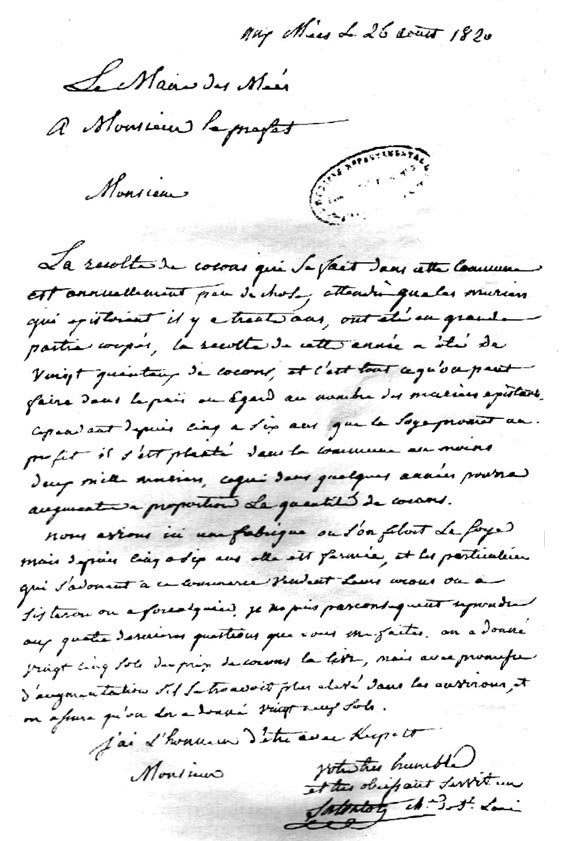 Aux Mées le 26 août 1820
Le Maire des Mées
A Monsieur le prefet
Monsieur
La recolte de cocons qui se fait dans cette Commune
est annuellement peu de chose, attendu que les muriers
qui existoient il y a trente ans, ont été en grande
partie coupés, la recolte de cette année a été de
vingt quintaux de cocons, et c'est tout ce qu'on peut
faire dans le païs eu Egard au nombre des muriers existans.
cependant depuis cinq a six ans que la soye promet un
profit il s'est planté dans la commune au moins
deux mille muriers, ce qui dans quelques années pourra
augmenter a proportion la quantité de cocons.
nous avions ici une fabrique ou l'on filoit la soye
mais depuis cinq a six ans elle est fermée, et les particuliers
qui s'adonent a ce commerce vendent leurs cocons ou a
Sisteron ou a forcalquier, je ne puis par consequent repondre
aux quatre dernieres questions que vous me faites. on a donné
vingt cinq sols du prix de cocons la livre, mais avec promesse
d'augmentation s'il se trouvoit plus elevé dans les environs, et
on assure qu'on en a donné vingt neuf sols.
j'ai L'honneur d'être avec Respect
Monsieur
votre tres humble
et tres obeissant serviteur
de St. Loui